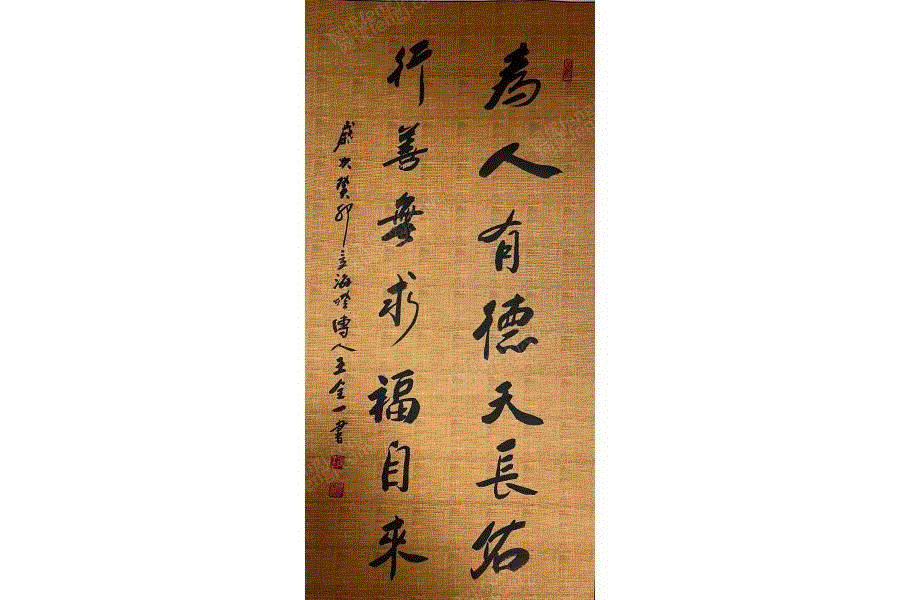 為人有德天長佑
行善無求福自来
歲次癸卯言海燈傳人王全一書